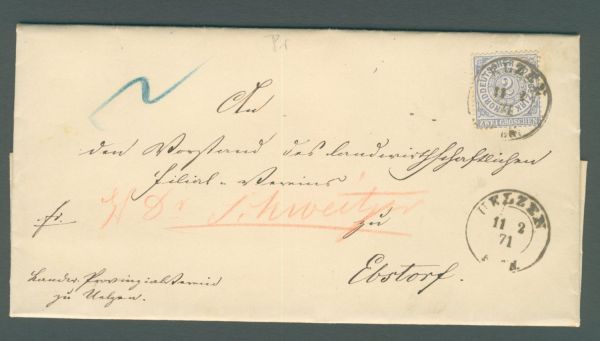 Pr
2
NORDDEUTSCHER
2
ZWEI GROSCHEN
UELZEN
11 2
An
den Vorstand des landwirthschaftlichen
Filial-Vereins
fr.
Dr Schweitzer
zu
UELZEN
11 2
71
Ebstorf.
Landw. Provinzialverein
zu Uelzen.